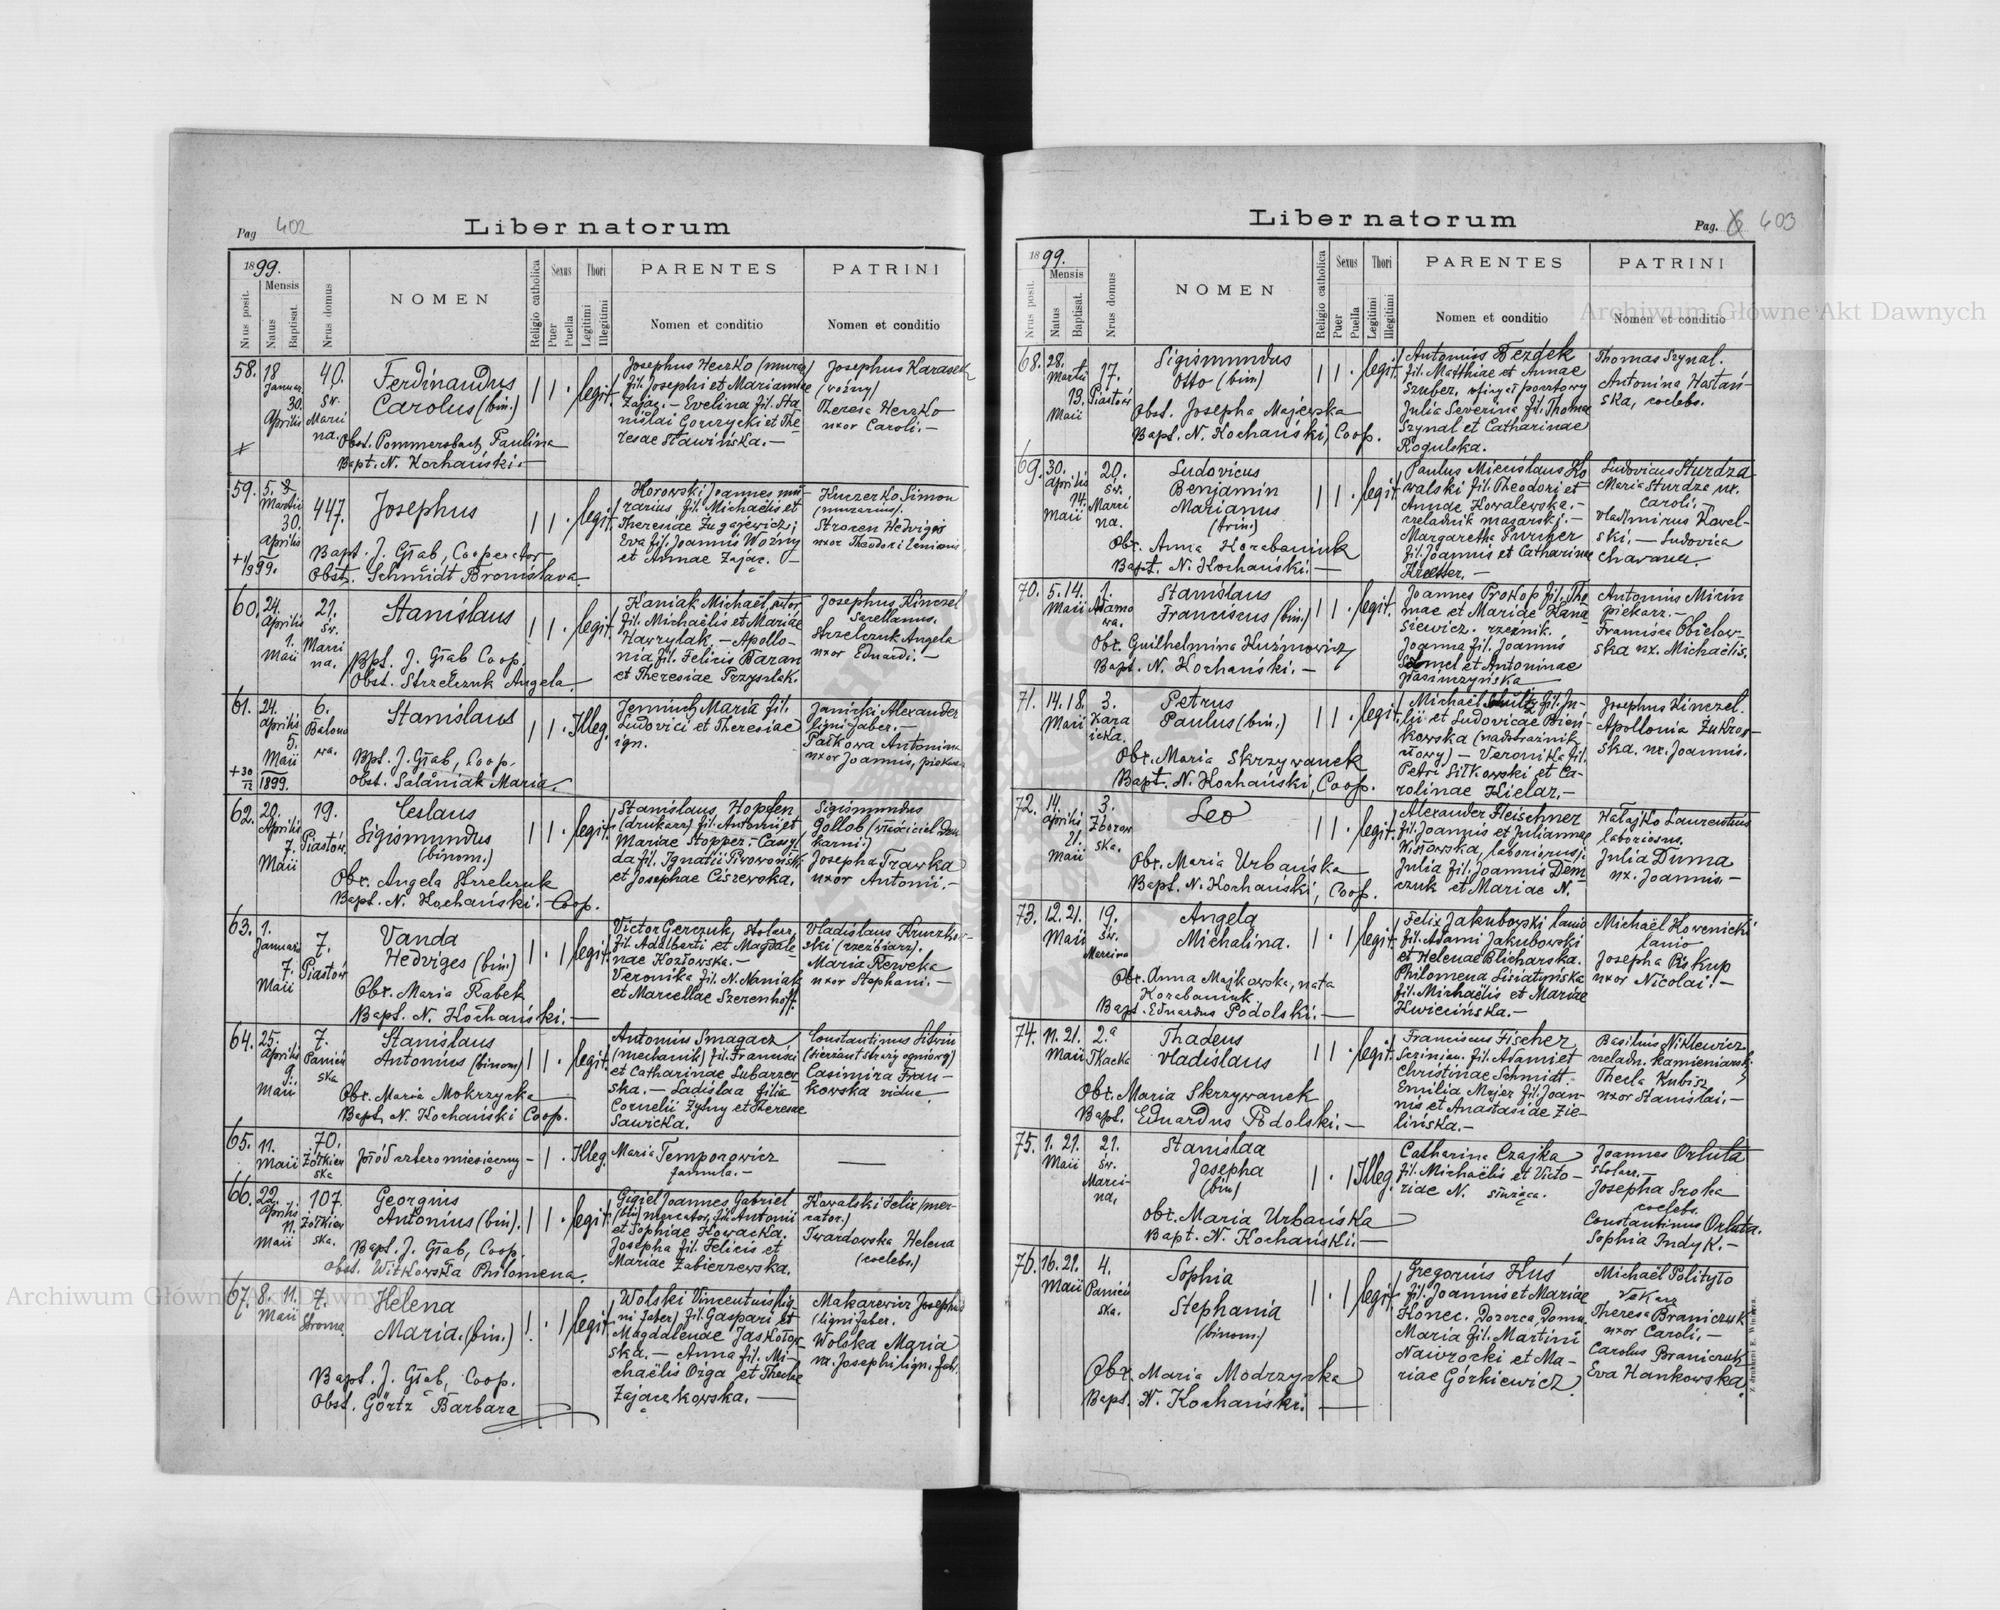 Pag 402
Liber natorum
1899.
Nrus posit.
Mensis
Natus
Baptisat.
Nrus domus
NOMEN
Religio catholica
Sexus
Puer
Puella
Thori
Legitimi
Illegitimi
PARENTES
Nomen et conditio
PATRINI
Nomen et conditio
58. 18 Januar. 30. Aprilis
40. św. Marcina.
Ferdinandus
Carolus (bin.)
Obst. Pommersbach Paulina
Bapt. N. Kochański.
legit.
Josephus Herzko
fil. Josephi et Mariannae
Zając. — Evelina fil. Sta-
nislai Gorzycki et The-
resae Sławińska. —
Josephus Karasek
(woźny)
Theresa Herzko
uxor Caroli. —
59. 5. Martii 30. Aprilis
447.
Josephus
Bapt. J. Grab, Cooperator
Obst. Schmidt Bronislava
legit.
Horowski Joannes mu-
rarius, fil. Michaëlis et
Theresiae Zugajewicz;
Eva fil. Joannis Woźny
et Annae Zając. —
Simon
(murarius).
Hedvigis
uxor Theodori
60. 24. Aprilis 1. Maii
21. św. Marcina.
Stanislaus
Bpt. J. Grab Coop.
Obst. Strzelczuk Angela
legit.
Kaniak Michaël, sutor
fil. Michaëlis et Mariae
Hawrylak. — Apollo-
nia fil. Felicis Baran
et Theresiae Przyszlak.
Josephus Kinczel
Strzelczuk Angela
uxor Eduardi. —
61. 24. Aprilis 5. Maii
6. Balonowa.
+ 30/12 1899.
Stanislaus
Bpt. J. Grab, Coop.
Obst. Salamiak Maria.
Illeg.
Jennich Maria fil.
Ludovici et Theresiae
ign.
Janicki Alexander
ligni faber. —
Palkowa Antonina
uxor Joannis,
62. 20. Aprilis 7. Maii
19. Piastów.
Ceslaus
Sigismundus
(binom.)
Obr. Angela Strzelczuk
Bapt. N. Kochański. Coop.
legit.
Stanislaus Hopfen
(drukarz) fil. Antonii et
Mariae Stopper. Candy-
da fil. Ignatii Pirowoński
et Josephae Ciszewska.
Sigismundus
Gollob (właściciel Dru-
karni.)
Josepha Trawka
uxor Antonii. —
63. 1. Januarii 7. Maii
7. Piastów
Vanda
Hedviges (bin.)
Obr. Maria Rabek
Bapt. N. Kochański. —
legit.
Victor Gerczuk, stolarz,
fil. Adalberti et Magdale-
nae Kozłowska. —
Veronika fil. N. Naniak
et Marcellae Szerenhoff.
Vladislaus Kruczkow-
ski (rzeźbiarz).
Maria Reweka
uxor Stephani. —
64. 25. Aprilis 9. Maii
7. Panieńska
Stanislaus
Antonius (binom)
Obr. Maria Mokrzycka
Bapt. N. Kochański Coop.
legit.
Antonius Smagacz
(mechanik) fil. Francisci
et Catharinae Lubarzew-
ska. — Ladislaa filia
Cornelii Żytny et Theresae
Sawicka.
Constantinus
(sierżant straży ogniowej)
Casimira Fran-
kowska vidua
65. 11. Maii
70. Żółkiewska
płód czteromiesięczny
Illeg.
Maria Temporowicz
famula. —
66. 22. Aprilis 11. Maii
107. Żółkiewska.
Georgius
Antonius (bin).
Bapt. J. Grab, Coop.
Obst. Witkowska Philomena.
legit.
Gigiel Joannes Gabriel
(bin) mercator, fil. Antonii
et Sophiae Nowacka.
Josepha fil. Felicis et
Mariae Zabierzewska.
Kowalski Felix (mer-
cator.)
Twardowska Helena
(coelebs.)
67. 8. 11. Maii
7. Stroma
Helena
Maria. (bin.)
Bapt. J. Grab, Coop.
Obst. Görtz Barbara
legit.
Wolski Vincentius (lig-
ni faber) fil. Gaspari et
Magdalenae Jaskołow-
ska. — Anna fil. Mi-
chaëlis Ożga et Theclae
Zajączkowska. —
Makarewicz Josephus
(ligni faber.
Wolska Maria
ux. Josephi lign. fabr.
Liber natorum
Pag. 403
1899.
Nrus posit.
Mensis
Natus
Baptisat.
Nrus domus
NOMEN
Religio catholica
Sexus
Puer
Puella
Thori
Legitimi
Illegitimi
PARENTES
Nomen et conditio
PATRINI
Nomen et conditio
68. 28. Martii 13. Maii
17. Piastów
Sigismundus
Otto (bin)
Obst. Josepha Majewska
Bapt. N. Kochański, Coop.
legit.
Antonius Bezdek
fil. Matthiae et Annae
Szuber, oficyał pocztowy
Julia Severina fil. Thomae
Szynal et Catharinae
Rogulska.
Thomas Szynal.
Antonina Hastań-
ska, coelebs.
69. 30. Aprilis 14. Maii
20. św. Marcina.
Ludovicus
Benjamin
Marianus
(trin.)
Obr. Anna Korabaniuk
Bapt. N. Kochański. —
legit.
Paulus Miecislaus Ko-
walski fil. Theodori et
Annae Kowalewska. —
czeladnik masarski. —
Margaretha Purcher
fil. Joannis et Catharinae
Ludovicus Sturdza
Maria Sturdza ux.
Caroli. —
Vladimirus Kawel-
ski. — Ludovica
70. 5. 14. Maii
1. Adamowa.
Stanislaus
Franciscus (bin.)
Obr. Guilhelmina Kuźniewicz
Bapt. N. Kochański. —
legit.
Joannes Prokop fil. Tho-
mae et Mariae Hana-
siewicz. rzeźnik.
Joanna fil. Joannis
et Antoninae
Jasinczyńska
Antonius Micin
piekarz. —
Francisca Obielow-
ska ux. Michaëlis.
71. 14. 18. Maii
3. Karaicka.
Petrus
Paulus (bin.)
Obr. Maria Skrzywanek
Bapt. N. Kochański, Coop.
legit.
Michaël Schultz fil. Ju-
lii et Ludovicae Bień-
kowska (nadstrażnik
cłowy) — Veronika fil.
Petri Sitkowski et Ca-
rolinae Kielar. —
Josephus Kinczel.
Apollonia Zukrow-
ska, ux. Joannis.
72. 14. Aprilis 21. Maii
3. Zborowska.
Leo
Obr. Maria Urbańska
Bapt. N. Kochański, Coop.
legit.
Alexander Fleischner
fil. Joannis et Juliannae
Wisłowska, laboriosus;
Julia fil. Joannis Dem-
czuk et Mariae N.
Hałajko Laurentius
laboriosus.
Julia Duma
ux. Joannis. —
73. 12. 21. Maii
19. św. Marcina
Angela
Michalina.
Obr. Anna Majkowska, nata
Korabaniuk
Bapt. Eduardus Podolski. —
legit.
Felix Jakubowski lanio
fil. Adami Jakubowski
et Helenae Blicharska.
Philomena Lisiatyńska
fil. Michaëlis et Mariae
Kwiecińska. —
Michaël Korenicki
lanio
Josepha Piskup
uxor Nicolai. —
74. 11. 21. Maii
2a Tkacka
Thadeus
Vladislaus
Obr. Maria Skrzywanek
Bapt. Eduardus Podolski. —
legit.
Franciscus Fischer
fil. Adami et
Christinae Schmidt.
Emilia Majer fil. Joan-
nis et Anastasiae Zie-
lińska. —
Basilius Nitklewicz
czeladn. kamieniarski
Thecla Kubisz
uxor Stanislai. —
75. 1. 21. Maii
21. św. Marcina,
Stanislaa
Josepha
(bin)
Obr. Maria Urbańska
Bapt. N. Kochański. —
Illeg.
Catharina Czajka
fil. Michaëlis et Victo-
riae N. służąca.
Joannes Orluta
stolarz —
Josepha Sroka
coelebs.
Constantinus Orluta.
Sophia Indyk. —
76. 16. 21. Maii
4. Panieńska.
Sophia
Stephania
(binom.)
Obr. Maria Modrzycka
Bapt. N. Kochański. —
legit.
Gregorius Kuś
fil. Joannis et Mariae
Konec. Dozorca Domu.
Maria fil. Martini
Nawrocki et Ma-
riae Górkiewicz.
Michaël Polityło
Theresa Braniczuk
uxor Caroli. —
Carolus Braniczuk
Eva Hankowska.
Z drukarni E. Winiarza.
Archiwum Główne Akt Dawnych
Archiwum Główne Akt Dawnych